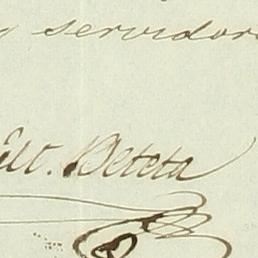 y servidor
Edt. Beteta